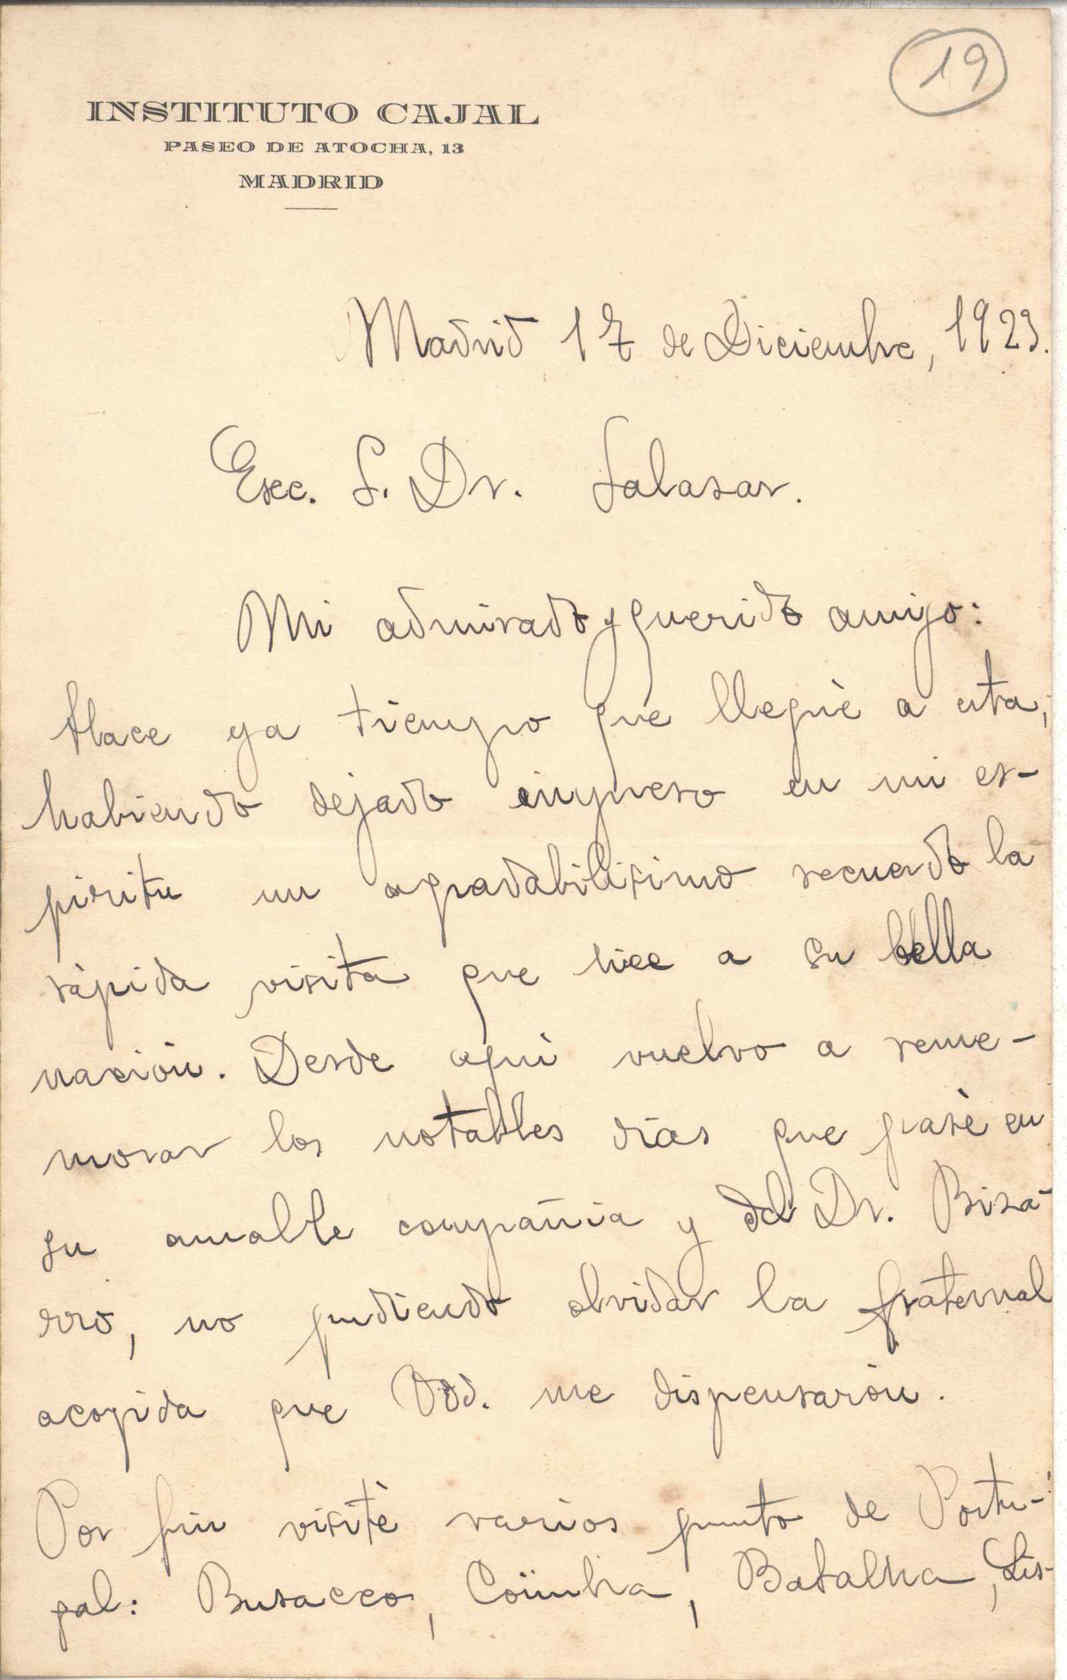 19
INSTITUTO CAJAL
PASEO DE ATOCHA, 13
MADRID
Madrid 17 de Diciembre, 1923.
Exc. S. Dr. Salasar.
Mi admirado y querido amigo:
Hace ya tiempo que llegué a esta,
habiendo dejado impreso en mi es-
píritu un agradabilisimo recuerdo la
rápida visita que hice a su bella
nación. Desde aqui vuelvo a reme-
morar los notables días que pasé en
su amable compañia y del Dr. Biza-
rro, no pudiendo olvidar la fraternal
acogida que Vdd. me dispensarón.
Por fin visité varios punto de Portu-
gal: Busacco, Coïmbra, Batalha, Lis-